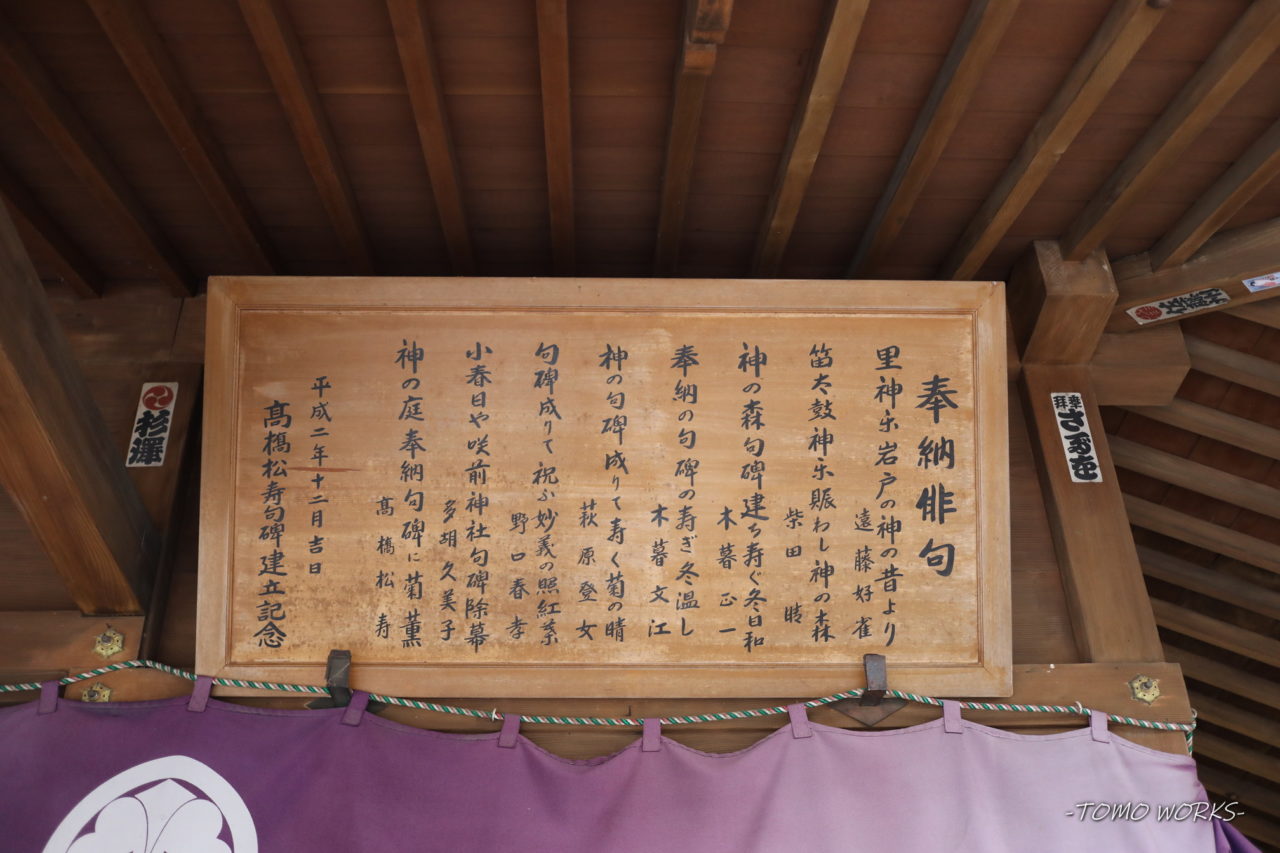 奉納俳句
里神楽岩戸の神の昔より
遠藤好雀
笛太鼓神楽賑わし神の森
柴田晴
神の森句碑建ち寿ぐ冬日和
木暮正一
奉納の句碑の寿ぎ冬温し
木暮文江
神の句碑成りて寿く菊の晴
萩原登女
句碑成りて祝ふ妙義の照紅葉
野口春孝
小春日や咲前神社句碑除幕
多胡久美子
神の庭奉納句碑に菊薫
髙橋松寿
平成二年十二月吉日
髙橋松寿句碑建立記念
杉澤
-TOMO WORKS-